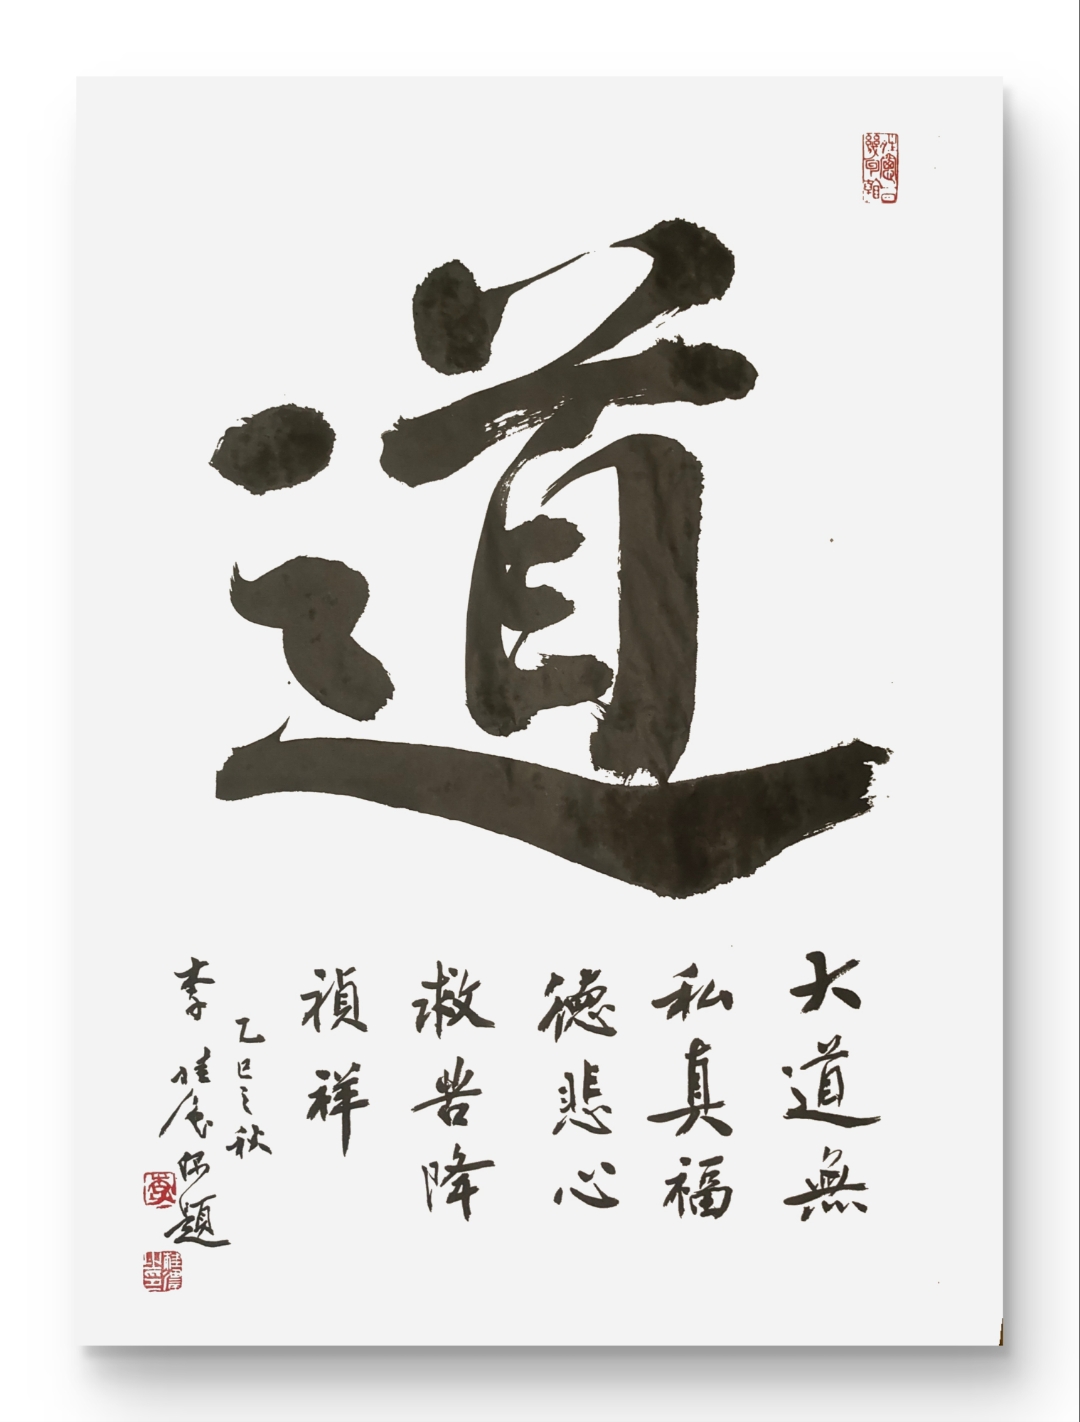 道
大道無
私真福
德悲心
救苦降
禎祥
乙巳之秋
李
題